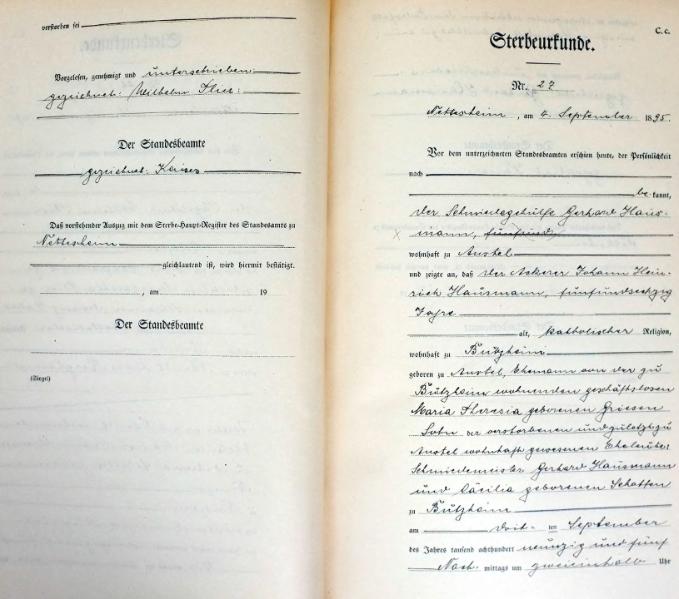 verstorben sei
Vorgelesen, genehmigt und unterschrieben:
gezeichnet: Wilhelm
Der Standesbeamte
gezeichnet: Kaiser
Daß vorstehender Auszug mit dem Sterbe-Haupt-Register des Standesamts zu
Nettesheim
gleichlautend ist, wird hiermit bestätigt.
, am 19
Der Standesbeamte
(Siegel)
C. c.
Sterbeurkunde.
Nr. 27
Nettesheim, am 4. September 1895.
Vor dem unterzeichneten Standesbeamten erschien heute, der Persönlichkeit
nach
be kannt,
der Schmiedegehülfe Gerhard Haus-
mann, fünfund
wohnhaft zu Anstel
und zeigte an, daß der Ackerer Johann Hein-
rich Hausmann, fünfundsechzig
Jahre
alt, katholischer Religion,
wohnhaft zu Bützheim
geboren zu Anstel, Ehemann von der zu
Bützheim wohnenden geschäftslosen
Maria Theresia geborenen Griesen
Sohn der verstorbenen und zuletzt zu
Anstel wohnhaft gewesenen Eheleute:
Schmiedemeister Gerhard Hausmann
und Cäcilia geborenen Schotten
zu Bützheim
am drit- ten September
des Jahres tausend achthundert neunzig und fünf
Nach- mittags um zweieinhalb Uhr